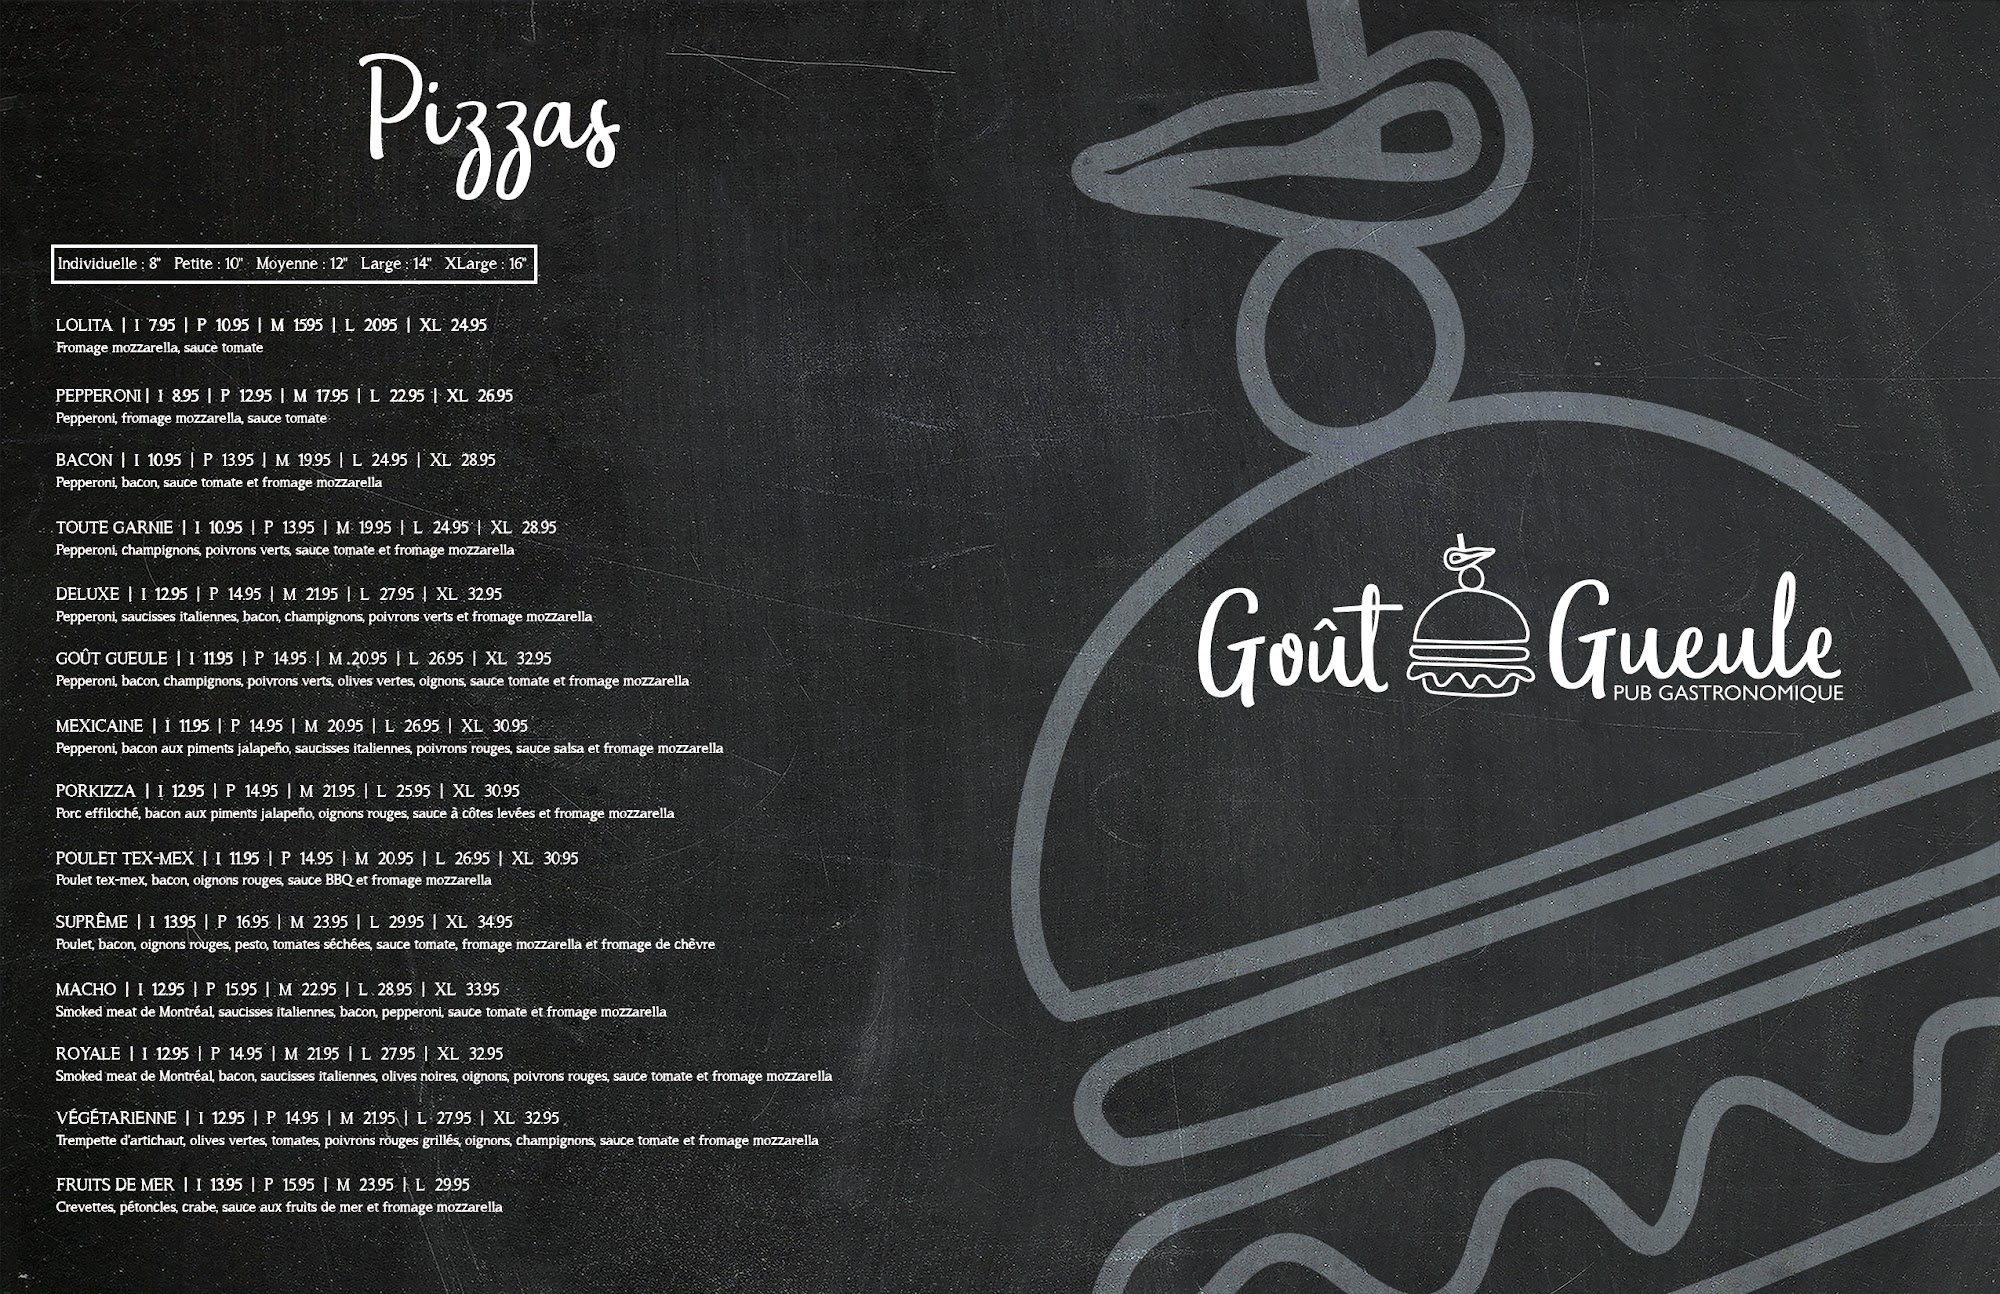 Pizzas
Individuelle : 8" Petite : 10" Moyenne : 12" Large : 14" XLarge : 16"
LOLITA | I 7.95 | P 10.95 | M 15.95 | L 20.95 | XL 24.95
Fromage mozzarella, sauce tomate
PEPPERONI | I 8.95 | P 12.95 | M 17.95 | L 22.95 | XL 26.95
Pepperoni, fromage mozzarella, sauce tomate
BACON | I 10.95 | P 13.95 | M 19.95 | L 24.95 | XL 28.95
Pepperoni, bacon, sauce tomate et fromage mozzarella
TOUTE GARNIE | I 10.95 | P 13.95 | M 19.95 | L 24.95 | XL 28.95
Pepperoni, champignons, poivrons verts, sauce tomate et fromage mozzarella
DELUXE | I 12.95 | P 14.95 | M 21.95 | L 27.95 | XL 32.95
Pepperoni, saucisses italiennes, bacon, champignons, poivrons verts et fromage mozzarella
GOÛT GUEULE | I 11.95 | P 14.95 | M 20.95 | L 26.95 | XL 32.95
Pepperoni, bacon, champignons, poivrons verts, olives vertes, oignons, sauce tomate et fromage mozzarella
MEXICAINE | I 11.95 | P 14.95 | M 20.95 | L 26.95 | XL 30.95
Pepperoni, bacon aux piments jalapeño, saucisses italiennes, poivrons rouges, sauce salsa et fromage mozzarella
PORKIZZA | I 12.95 | P 14.95 | M 21.95 | L 25.95 | XL 30.95
Porc effiloché, bacon aux piments jalapeño, oignons rouges, sauce à côtes levées et fromage mozzarella
POULET TEX-MEX | I 11.95 | P 14.95 | M 20.95 | L 26.95 | XL 30.95
Poulet tex-mex, bacon, oignons rouges, sauce BBQ et fromage mozzarella
SUPRÊME | I 13.95 | P 16.95 | M 23.95 | L 29.95 | XL 34.95
Poulet, bacon, oignons rouges, pesto, tomates séchées, sauce tomate, fromage mozzarella et fromage de chèvre
MACHO | I 12.95 | P 15.95 | M 22.95 | L 28.95 | XL 33.95
Smoked meat de Montréal, saucisses italiennes, bacon, pepperoni, sauce tomate et fromage mozzarella
ROYALE | I 12.95 | P 14.95 | M 21.95 | L 27.95 | XL 32.95
Smoked meat de Montréal, bacon, saucisses italiennes, olives noires, oignons, poivrons rouges, sauce tomate et fromage mozzarella
VÉGÉTARIENNE | I 12.95 | P 14.95 | M 21.95 | L 27.95 | XL 32.95
Trempette d'artichaut, olives vertes, tomates, poivrons rouges grillés, oignons, champignons, sauce tomate et fromage mozzarella
FRUITS DE MER | I 13.95 | P 15.95 | M 23.95 | L 29.95
Crevettes, pétoncles, crabe, sauce aux fruits de mer et fromage mozzarella
Goût Gueule
PUB GASTRONOMIQUE